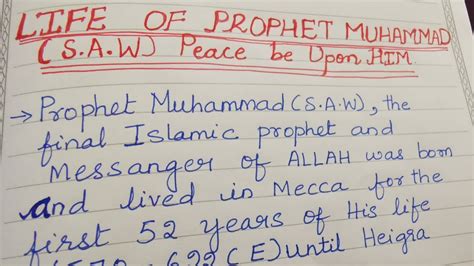 LIFE OF PROPHET MUHAMMAD
(S.A.W) Peace be Upon HIM
→ Prophet Muhammad (S.A.W), the
final Islamic prophet and
Messanger of ALLAH was born
and lived in Mecca for the
first 52 years of His life
(570 - 622 CE) until Heigra